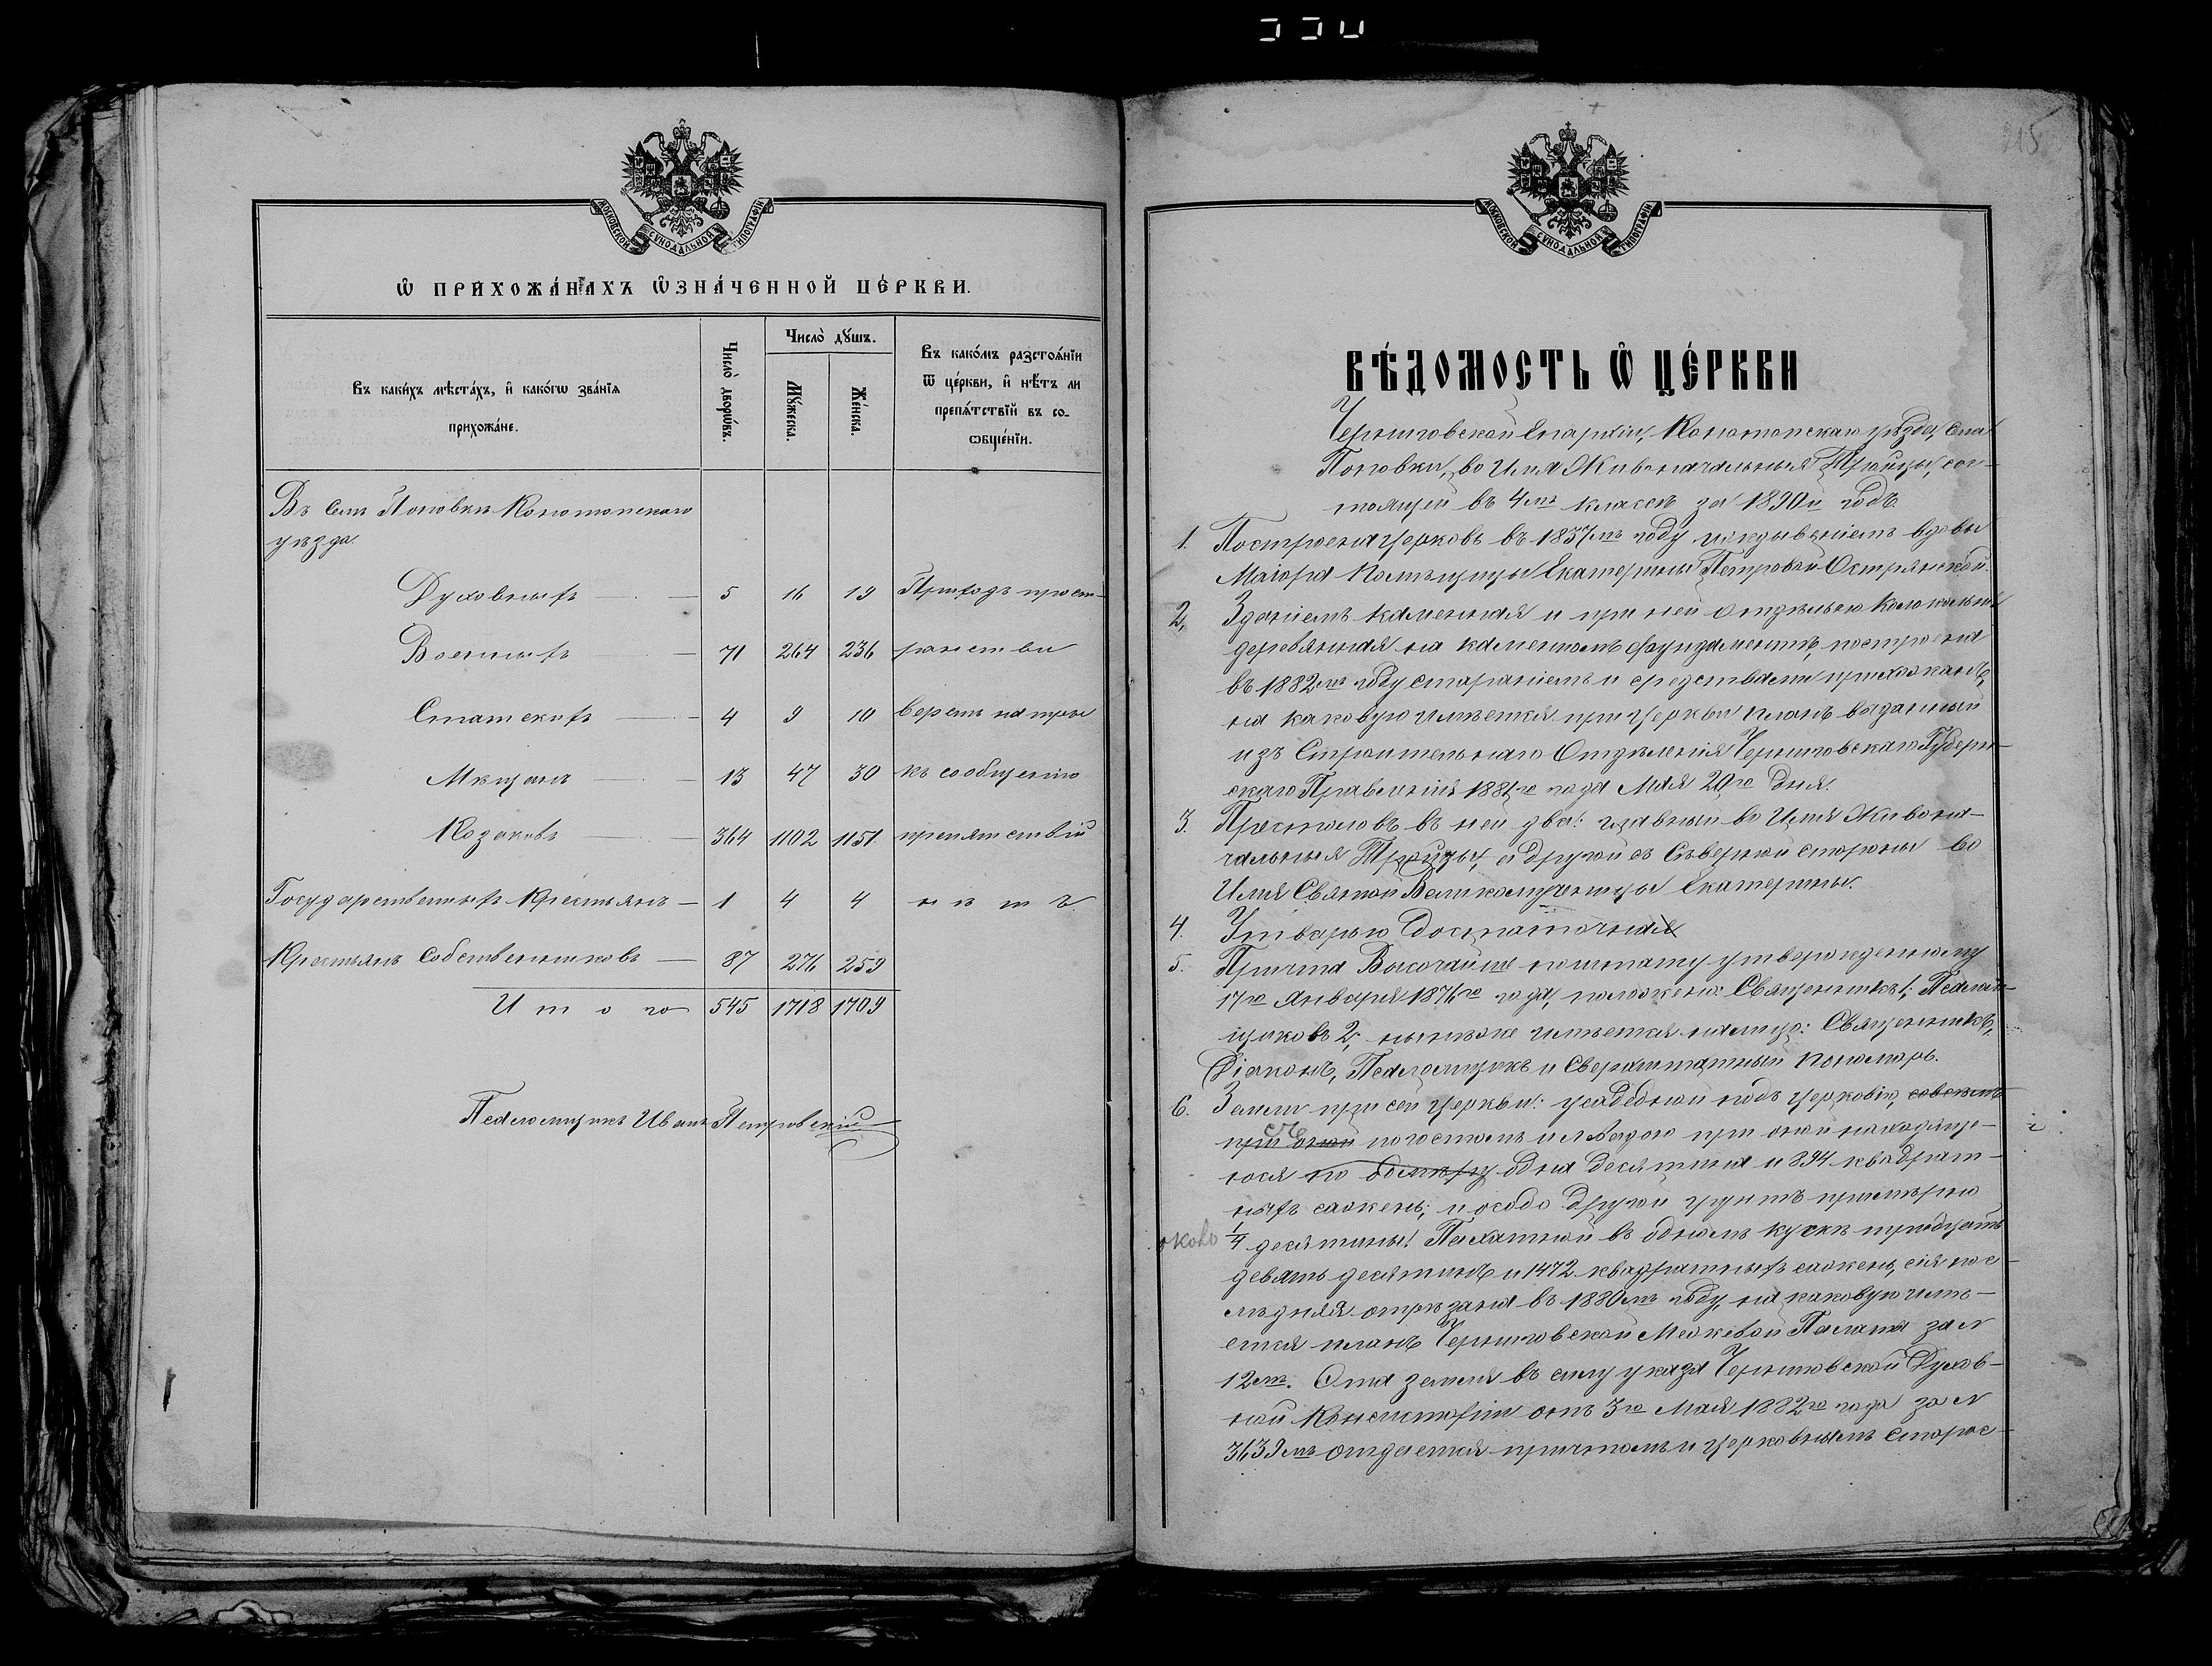 МОСКОВСКОЙ СѴНОДАЛЬНОЙ ТИПОГРАФІИ
Ѡ ПРИХОЖА́НАХЪ ѠЗНА́ЧЕННОЙ ЦЕ́РКВИ.
Въ каки́хъ мѣста́хъ, и҆ како́гѡ зва́нїѧ прихожа́не.
Число̀ дворѡ́въ.
Число̀ дꙋ́шъ.
Мꙋ́жеска.
Же́нска.
Въ како́мъ разстоѧ́нїи
ѿ це́ркви, и҆ нѣ́тъ ли
препѧ́тствїй въ со-
ѡбще́нїи.
Въ селѣ Поповкѣ Конотопскаго
уѣзда.
Духовныхъ — 5 16 19 Приходъ прост-
Военныхъ — 71 264 236 ранства
Статскихъ — 4 9 10 верстъ на три
Мѣщанъ — 13 47 30 къ сообщенію
Козаковъ — 364 1102 1151 препятствій
Государственныхъ Крестьянъ — 1 4 4 нѣтъ.
Крестьянъ Собственниковъ — 87 276 259
Итого 545 1718 1709
Псаломщикъ Иванъ Петровскій
215
МОСКОВСКОЙ СѴНОДАЛЬНОЙ ТИПОГРАФІИ
ВѢ́ДОМОСТЬ Ѡ ЦЕ́РКВИ
Черниговской Епархіи, Конотопскаго уѣзда, села
Поповки, во Имя Живоначальныя Тройцы, сос-
тоящей въ 4мъ классѣ за 1890й годъ.
1. Построена церковь въ 1837мъ году иждывеніемъ вдовы
Маіора Помѣщицы Екатерины Петровой Острянской.
2, Зданіемъ каменная и при ней отдѣльно колокольня
деревянная на каменномъ фаундаментѣ, построена
въ 1882мъ году стараніемъ и средствами прихожанъ,
на каковую имѣется при церкви планъ выданный
изъ Строительнаго Отдѣленія Черниговскаго Губерн-
скаго Правленія 1881го года Мая 20го дня.
3. Престоловъ въ ней два: главный во Имя Живона-
чальныя Тройцы, а другой съ Сѣверной стороны во
Имя Святой Великомученицы Екатерины.
4. Утварью достаточная
5. Причта Высочайше по штату утвержденному
17го Января 1876го года, положено: Священникъ 1; Псалом-
щиковъ 2; нынѣ же имѣется налицо: Священникъ,
Діаконъ, Псаломщикъ и Сверхштатный Пономарь.
6. Земли при сей церкви: усадебной подъ церковію, совсѣмъ
при оной съ погостомъ и левадою при оной находяще-
юся по обмѣру одна десятина и 894 квадрат-
ныхъ сажень; и особо другой грунтъ примѣрно
около 1/4 десятины! Пахатной въ одномъ кускѣ тридцать
девять десятинъ и 1472 квадратныхъ сажень, сія пос-
лѣдняя отрѣзана въ 1880мъ году, на каковую имѣ-
ется планъ Черниговской Межевой Палаты за №
12мъ. Она земля въ силу указа Черниговской Духов-
ной Консисторіи отъ 3го Мая 1882го года за №
3639мъ отдается причтомъ и церковнымъ старос-